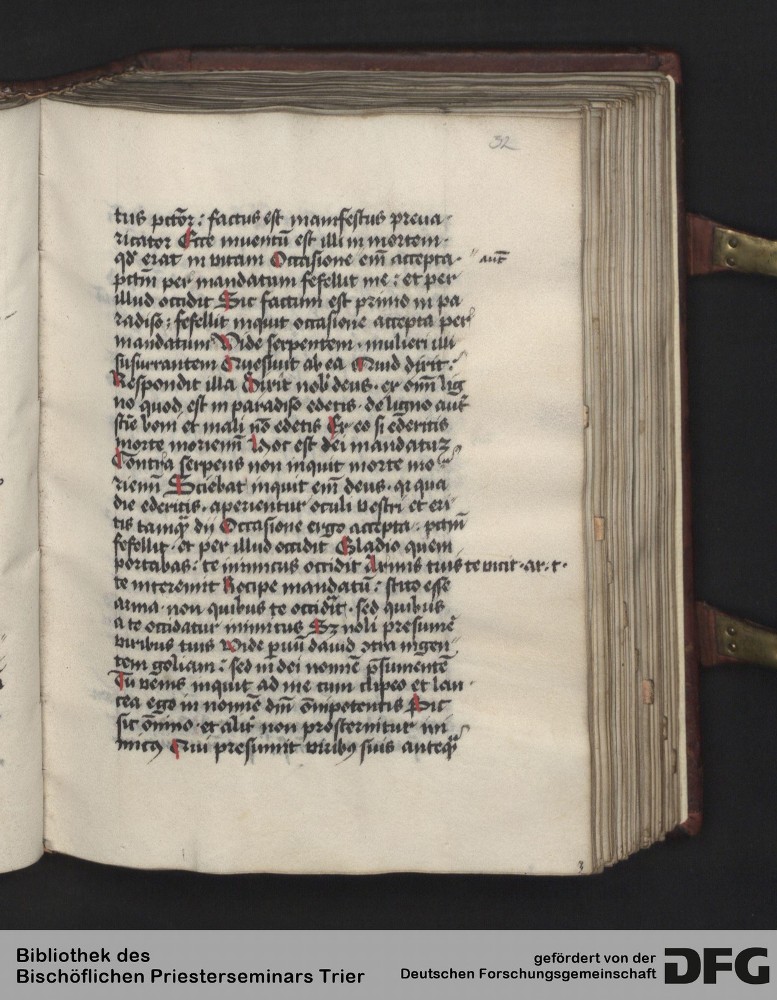 32
tus pctōr: factus est manifestus preua-
ricator Ecce inuentū est illi in mortem.
qd erat in vitam Occasione em̄ accepta. " aut̄
pctm̄ per mandatum fefellit me: et per
illud occidit Sic factum est primo in pa
radiso: fefellit inquit occasione accepta per
mandatum Vide serpentem. mulieri illi
susurrantem Quesiuit ab ea Quid dixit:
Respondit illa Dixit nob deus. ex om̄i lig
no quod est in paradiso edetis. de ligno aut̄
sc̄ie boni et mali nō edetis Ex eo si ederitis
morte moriem̄ Hoc est dei mandatuꝫ
Contra serpens non inquit morte mo
riem̄ Sciebat inquit em̄ deus. qr qua
die ederitis. aperientur oculi vestri et eri
tis tamqꝫ dii Occasione ergo accepta. pctm̄
fefellit. et per illud occidit Gladio quem
portabas: te inimicus occidit Armis tuis te vicit. ar. t.
te interemit Recipe mandatū: scito esse
arma. non quibus te occidit. sed quibus
a te occidatur inimicus Sꝫ noli presumē
viribus tuis Vide puū dauid ꝯtra ingen"
tem goliam: sed in dei nomie p̄sumentē
Tu venis inquit ad me cum clipeo et lan-
cea ego in nomie dn̄i om̄ipotentis Sic
sic om̄ino. et alit̄ non prosternitur ini
micꝰ Qui presumit viribꝰ suis anteqꝫ
3
Bibliothek des
Bischöflichen Priesterseminars Trier
gefördert von der
Deutschen Forschungsgemeinschaft
DFG